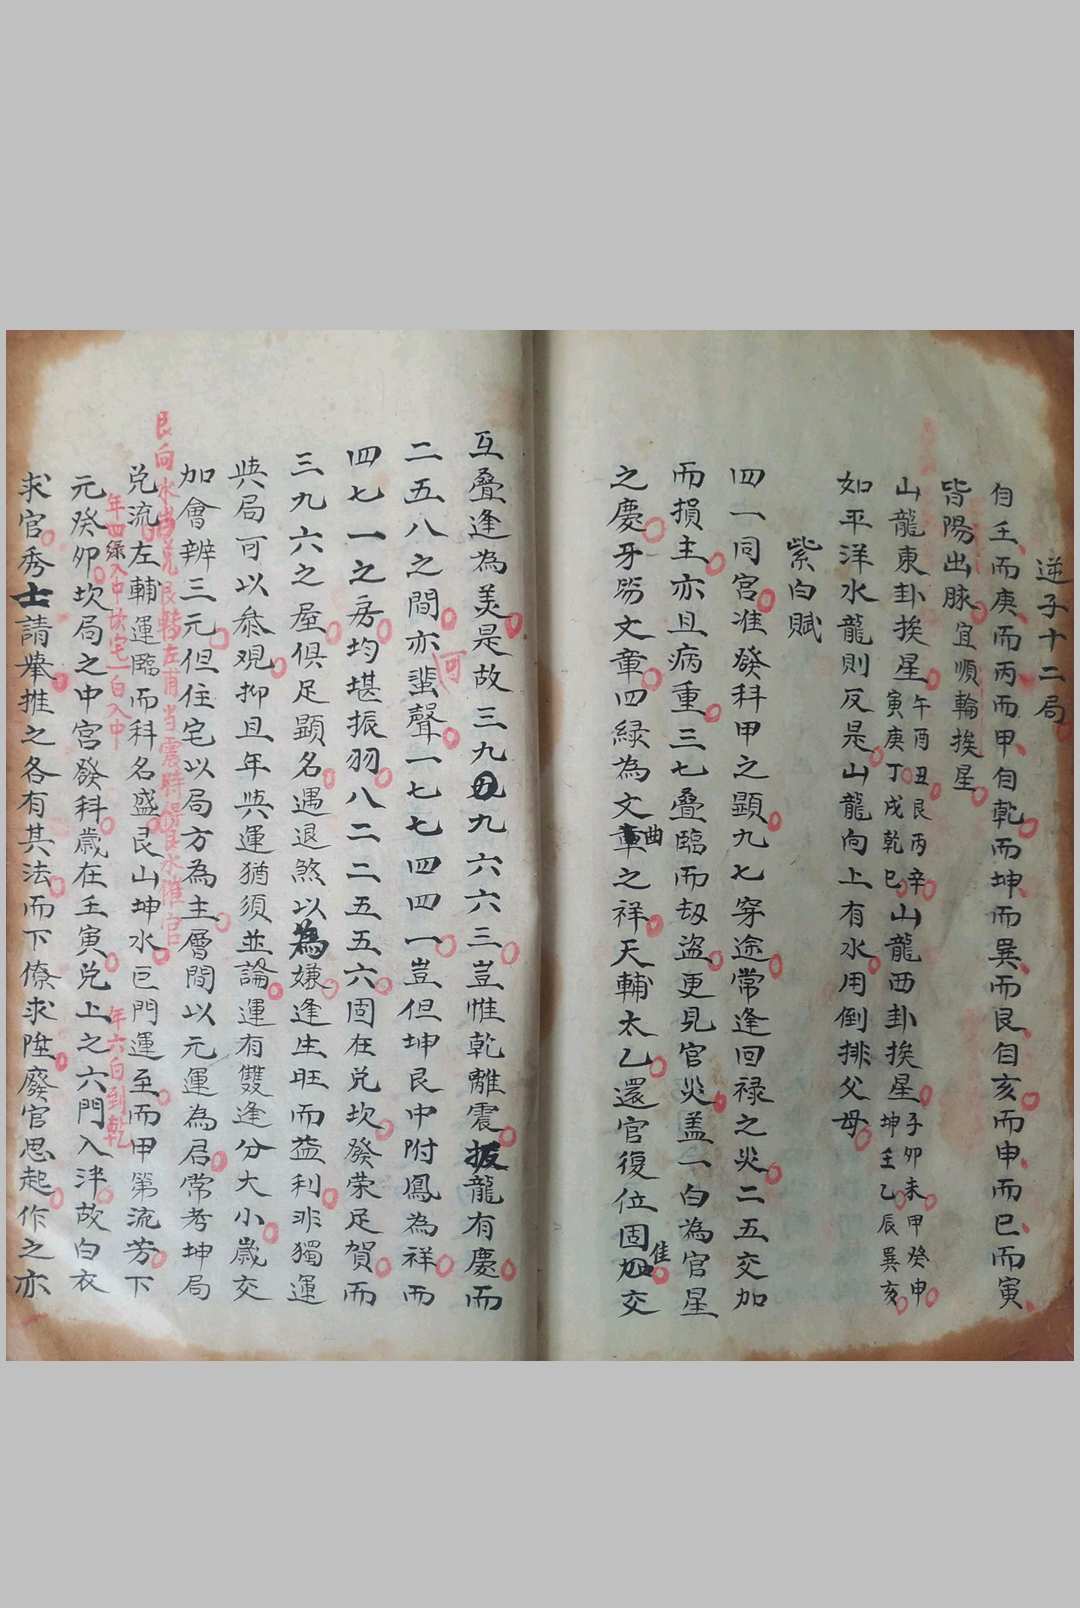 逆子十二局
自壬而庚而丙而甲自乾而坤而巽而艮自亥而申而巳而寅
皆陽出脉宜順輪挨星
山龍東卦挨星午酉丑艮丙辛寅庚丁戌乾巳山龍西卦挨星子卯未甲癸申坤壬乙辰巽亥
如平洋水龍則反是山龍向上有水用倒排父母
紫白賦
四一同宮准發科甲之顯九七穿途常逢回禄之災二五交加
而損主亦且病重三七叠臨而刼盜更見官災盖一白為官星
之慶牙笏文章四緑為文曲之祥天輔太乙還官復位固佳交
互叠逢為美是故三九九六六三豈惟乾離震扳龍有慶而
二五八之間亦可蜚聲一七七四四一豈但坤艮中附鳳為祥而
四七一之房均堪振羽八二二五五六固在兌坎發荣足賀而
三九六之屋俱足顯名遇退煞以為嫌逢生旺而益利非獨運
與局可以叅观抑且年與運猶須並論運有雙逢分大小歲交
加會辨三元但住宅以局方為主層間以元運為君常考坤局
兌流左輔運臨而科名盛艮山坤水巨門運至而甲第流芳下
年四緑入中坎宅一白入中
年六白到乾
元癸卯坎局之中宮發科歲在壬寅兌上之六門入泮故白衣
求官秀士請舉推之各有其法而下僚求陞廢官思起作之亦